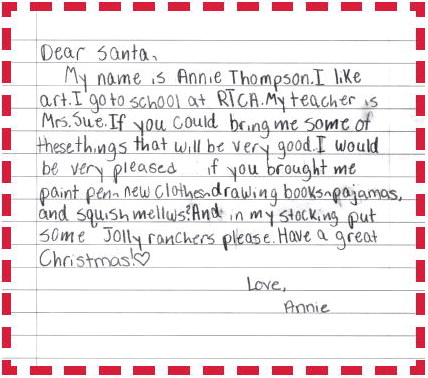 Dear Santa,
My name is Annie Thompson. I like
art. I go to school at RTCA. My teacher is
Mrs. Sue. If you could bring me some of
these things that will be very good. I would
be very pleased if you brought me
paint pen, new clothes, drawing books, pajamas,
and squishmellws? And in my stocking put
some Jolly ranchers please. Have a great
Christmas!♡
Love,
Annie